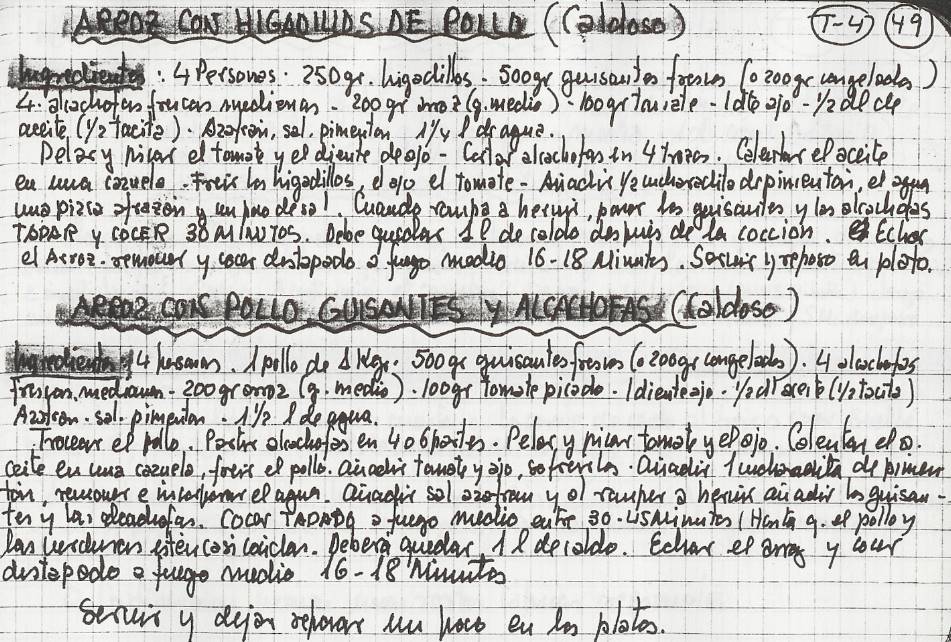 ARROZ CON HIGADILLOS DE POLLO (Caldoso) T-4 49
Ingredientes: 4 Personas. 250gr. higadillos - 500gr guisantes frescos (o 200gr congelados)
4. alcachofas frescas medianas - 200 gr arroz (g. medio) - 100gr tomate - 1 dte ajo - 1/2 dl de
aceite (1/2 tacita) - Azafrán, sal, pimenton 1 1/4 l de agua.
Pelar y picar el tomate y el diente de ajo - Cortar alcachofas en 4 trozos. Calentar el aceite
en una cazuela - Freir los higadillos, el ajo el tomate - Añadir 1/2 cucharadita de pimenton, el agua
una pizca y un poco de sal. Cuando rompa a hervir, poner los guisantes y las alcachofas
TAPAR y COCER 30 MINUTOS. Debe quedar 1 l de caldo después de la cocción. Echar
el Arroz - remover y cocer destapado a fuego medio 16-18 Minutos. Servir y reposo en plato.
ARROZ CON POLLO GUISANTES Y ALCACHOFAS (Caldoso)
Ingredientes: 4 personas. 1 pollo de 1 Kgr. 500 gr guisantes frescos (o 200gr congelados). 4 alcachofas
frescas medianas - 200 gr arroz (g. medio) - 100gr tomate picado - 1 diente ajo - 1/2 dl aceite (1/2 tacita)
Azafran - sal - pimenton - 1 1/2 l de agua.
Trocear el pollo. Partir alcachofas en 4 o 6 partes - Pelar y picar tomate y el ajo. Calentar el a-
ceite en una cazuela, freir el pollo. añadir tomate y ajo, sofreirlos. Añadir 1 cucharadita de pimen-
tón, remover e incorporar el agua. añadir sal azafran y al romper a hervir añadir los guisan-
tes y las alcachofas. Cocer TAPADO a fuego medio entre 30-45 Minutos (Hasta q. el pollo y
las verduras estén casi cocidas. Deberá quedar 1 l de caldo. Echar el arroz y cocer
destapado a fuego medio 16-18 Minutos
Servir y dejar reposar un poco en los platos.